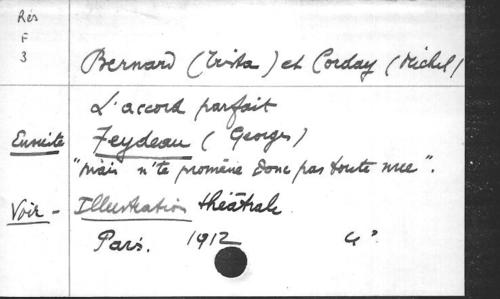 Rés
F
3
Bernard (Trista) et Corday (Michel)
L'accord parfait
Ensuite Feydeau (Georges)
"Mais n'te promène donc pas toute nue".
Voir - Illustration théâtrale
Paris. 1912 4°